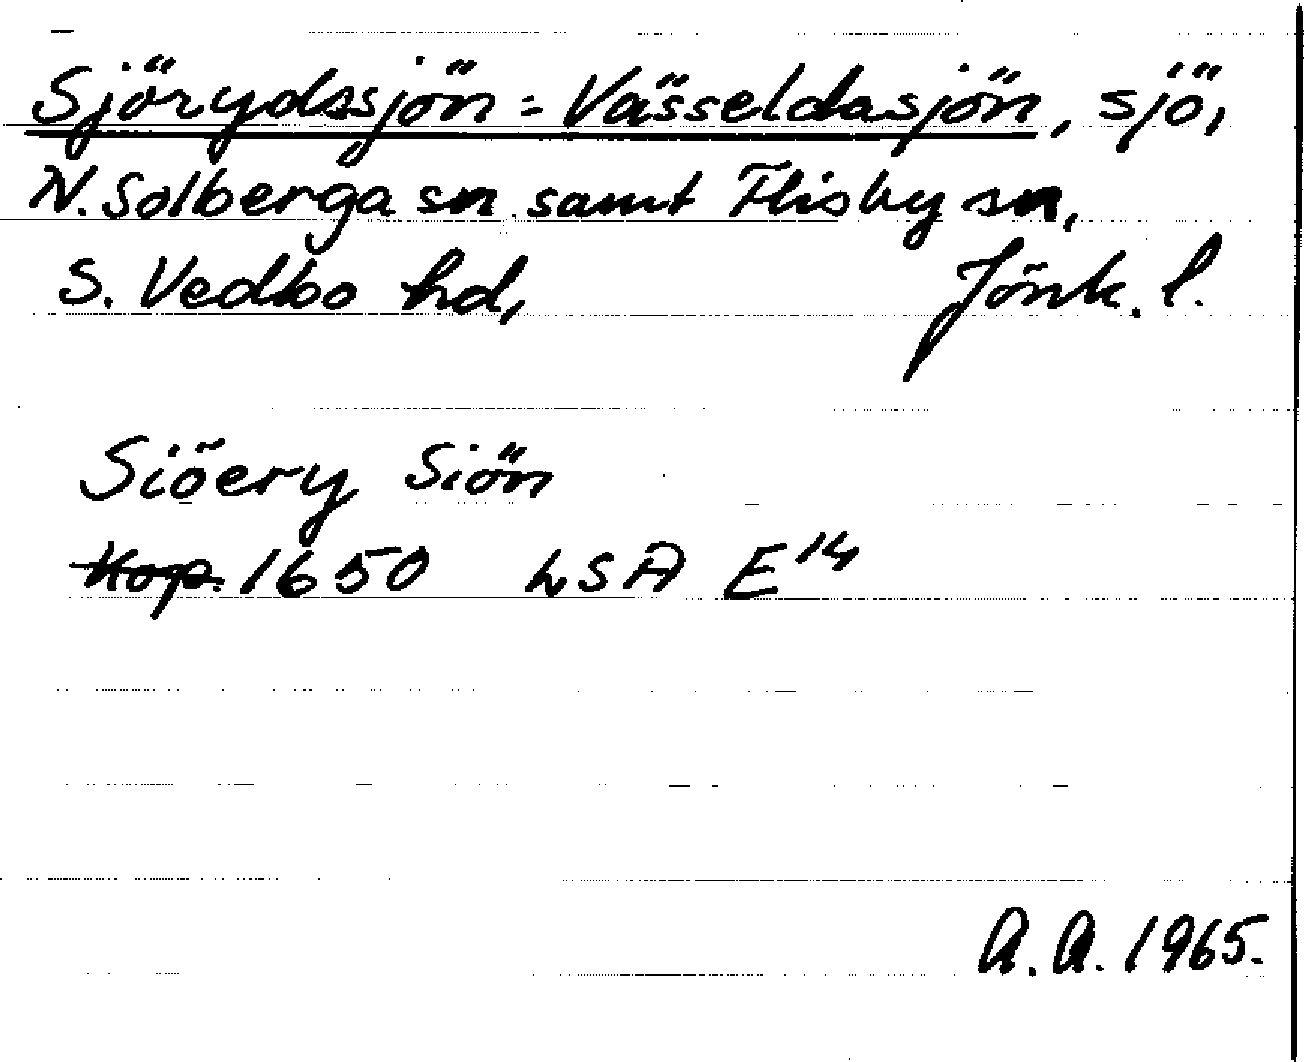 Sjörydssjön = Vässeldasjön, sjö,
N. Solberga sn samt Flisby sn,
S. Vedbo hd, Jönk. l.
Siöery Siön
Kop. 1650 LSA E14
A.A. 1965.